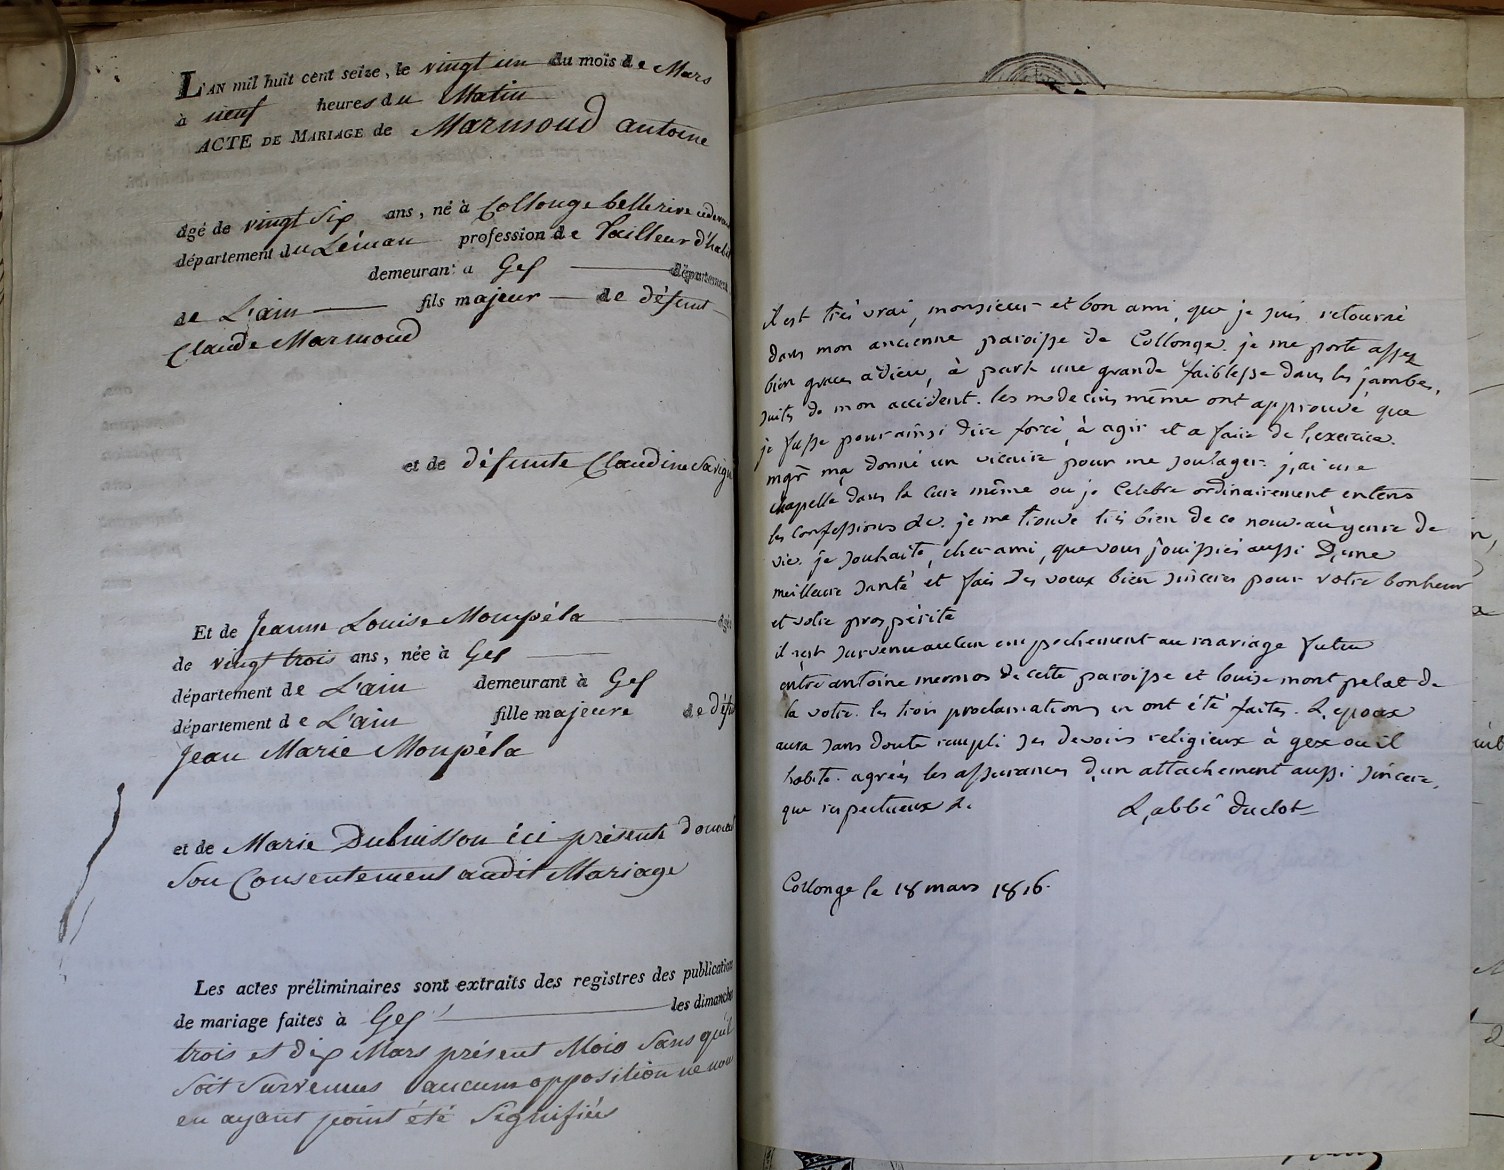 L'AN mil huit cent seize, le vingt un du mois de Mars
à neuf heures du Matin
ACTE DE MARIAGE de Marmoud antoine
âgé de vingt Six ans, né à Collonge bellerive cidevant
département du Léman profession de Tailleur d'habit
demeurant a Gex département
de L'ain fils majeur de défunt
Claude Marmoud
et de défunte Claudine Savigni
Et de Jeanne Louise Monpéla âgée
de vingt trois ans, née à Gex
département de L'ain demeurant à Gex
département de L'ain fille majeure de défu
Jean Marie Monpéla
et de Marie Dubuisson ici présente donnant
Son Consentement audit Mariage
Les actes préliminaires sont extraits des registres des publications
de mariage faites à Gex les dimanches
trois et dix Mars présent Mois Sans qu'il
Soit Survenus aucune opposition ne nous
en ayant point été Signifiées
il est très vrai, monsieur et bon ami, que je suis retourné
dans mon ancienne paroisse de Collonge. je me porte assez
bien graces a dieu, à part une grande faiblesse dans les jambes,
suite de mon accident. les médecins même ont approuvé que
je fusse pour ainsi dire forcé à agir et a faire de l'exercice.
mgr m'a donné un vicaire pour me soulager. j'ai une
chapelle dans la cure même ou je Celebre ordinairement entens
les confessions &c. je me trouve très bien de ce nouveau genre de
vie. je souhaite, cher ami, que vous jouissiés aussi d'une
meilleure santé et fais des voeux bien sinceres pour votre bonheur
et votre prospérité
il n'est survenu aucun empechement au mariage futur
entre antoine mermos de cette paroisse et louise montpelat de
la votre. les trois proclamations en ont été faites. L'epoux
aura sans doute rempli ses devoirs religieux à gex ou il
habite. agréés les assurances d'un attachement aussi sincere,
que respectueux &.
L'abbé duclot
Collonge le 18 mars 1816.